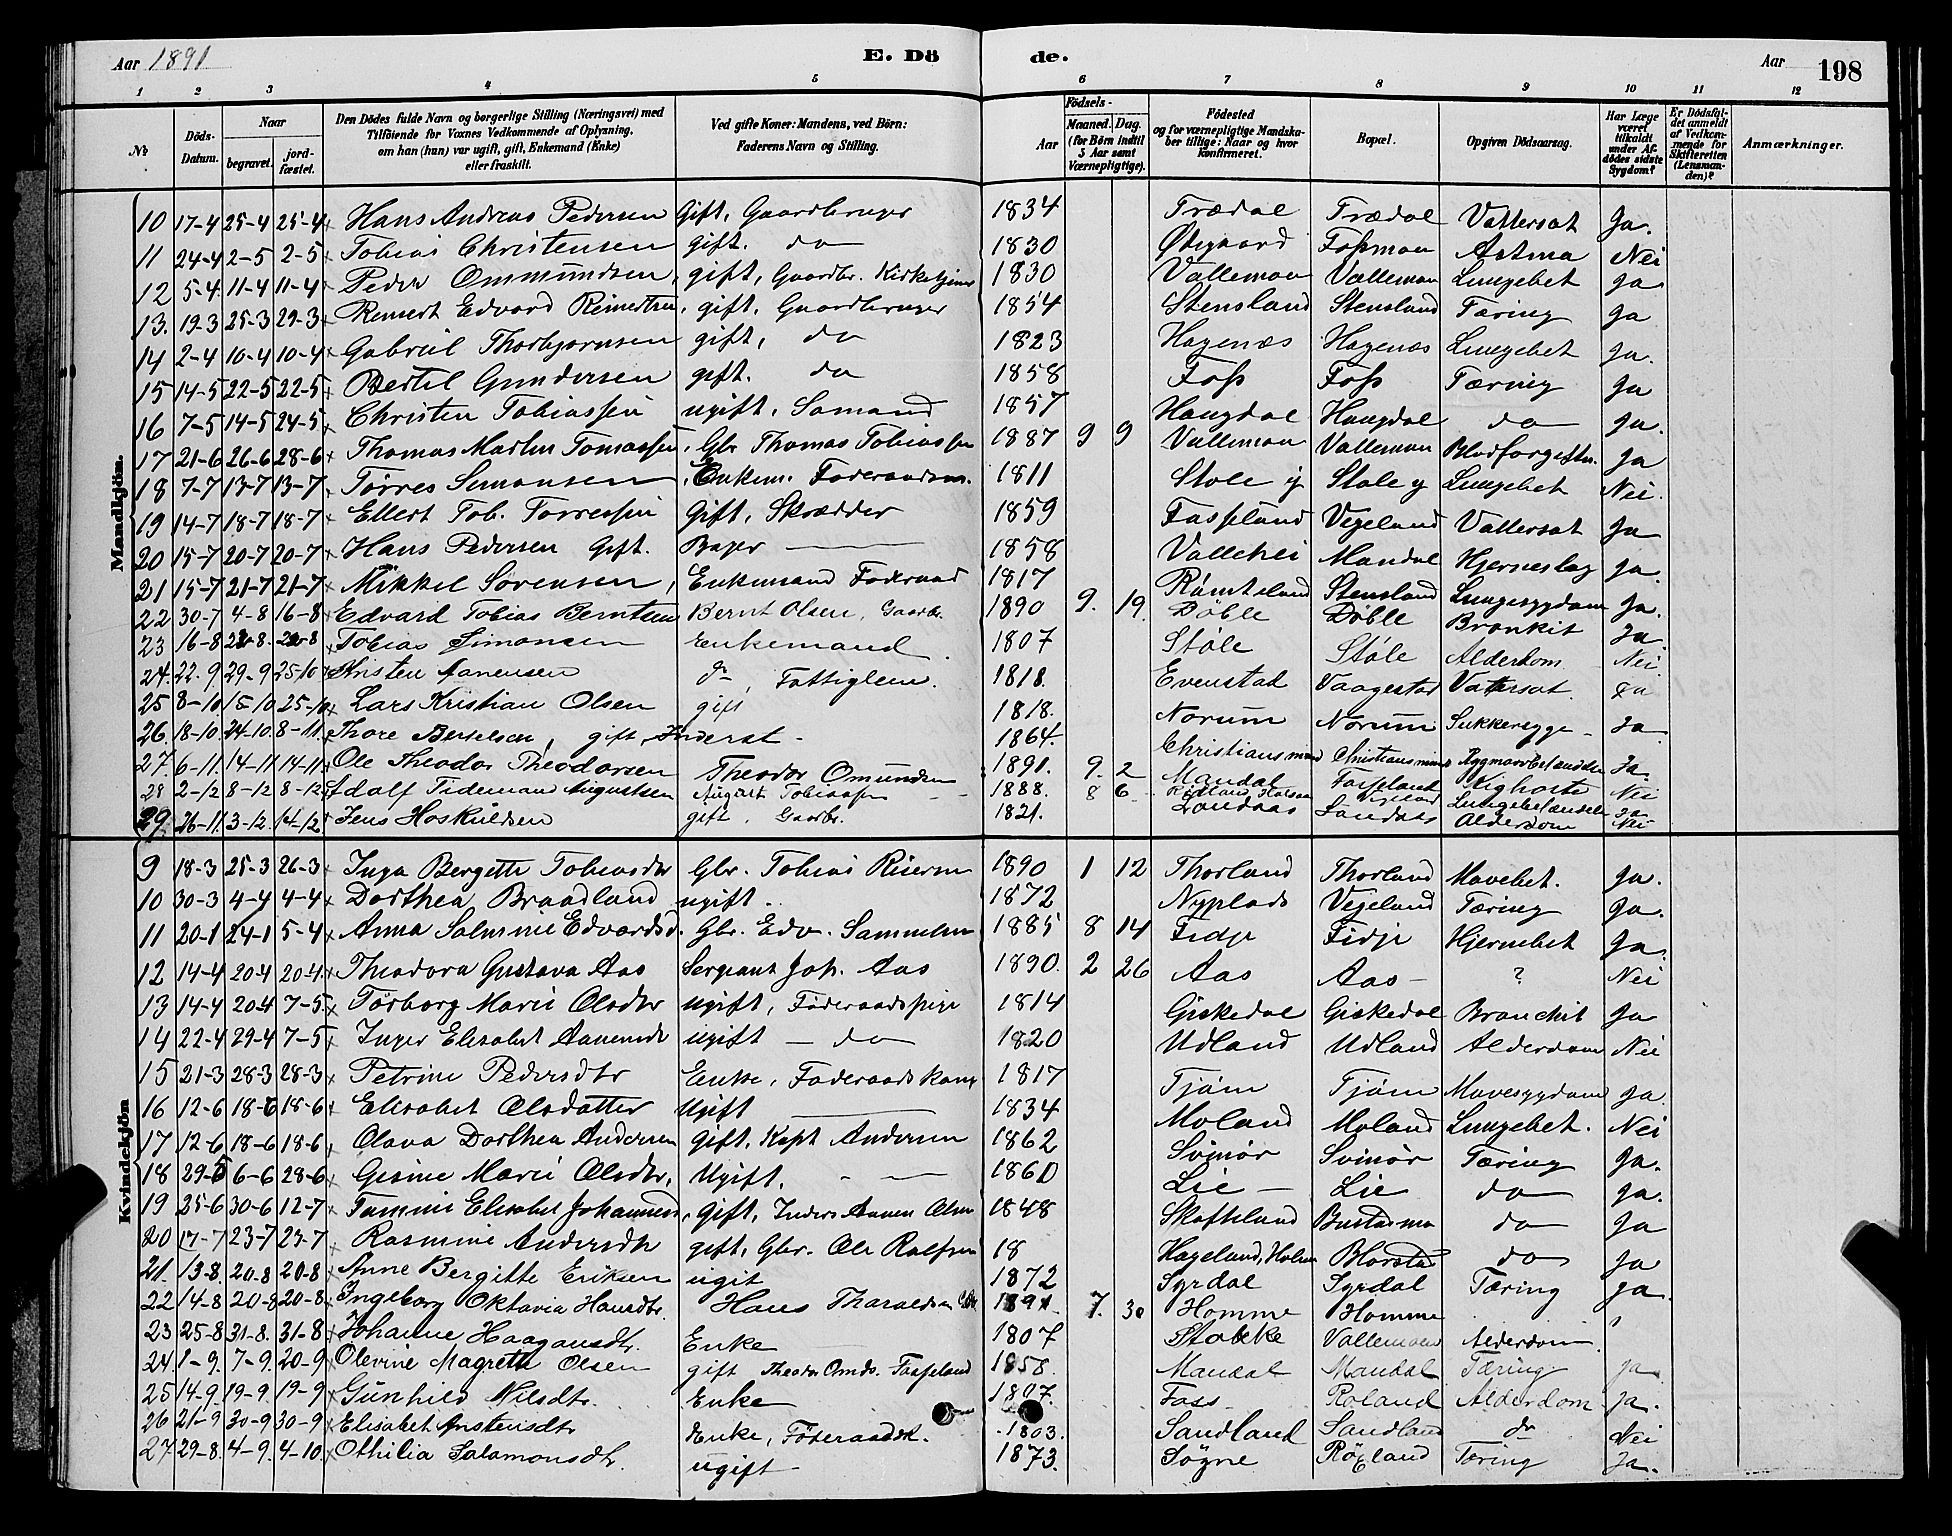 Aar 1891 E. Dö de. Aar 198
1 2 3 4 5 6 7 8 9 10 11 12
№ Döds-Datum. Naar begravet. jordfæstet. Den Dödes fulde Navn og borgerlige Stilling (Næringsvei) med Tilföiende for Voxnes Vedkommende af Oplysning, om han (hun) var ugift, gift, Enkemand (Enke) eller fraskilt. Ved gifte Koner: Mandens, ved Börn: Faderens Navn og Stilling. Födsels- Aar Maaned. Dag. (for Börn indtil 5 Aar samt Værnepligtige). Födested og for værnepligtige Mandskaber tillige: Naar og hvor konfirmeret. Bopæl. Opgiven Dödsaarsag. Har Læge været tilkaldt under Afdödes sidste Sygdom? Er Dödsfaldet anmeldt af Vedkommende for Skifteretten (Lensmanden)? Anmærkninger.
Mandkjön.
10 17-4 25-4 25-4 Hans Andreas Pedersen Gift, Gaardbruger 1834 Trædal Trædal Vattersot Ja.
11 24-4 2-5 2-5 Tobias Christensen gift. do 1830 Ødegaard Fossmon Astma Nei
12 5-4 11-4 11-4 Peder Ommundsen, gift, Gaardbr. Kirketjener 1830 Vallemon Vallemon Lungebet Ja
13. 19-3 25-3 29-3 Reinert Edvard Reinertsen, gift, Gaardbruger 1854 Stensland Stensland Tæring Ja
14 2-4 10-4 10-4 Gabriel Thorbjørnsen gift, do 1823 Hagenæs Hagenæs Lungebet Ja.
15 14-5 22-5 22-5 Bertil Gundersen gift. do 1858 Foss Foss Tæring Ja
16 7-5 14-5 24-5 Christen Tobiassen ugift, Sømand 1857 Haugdal Haugdal do Ja.
17 21-6 26-6 28-6 Thomas Martin Tomassen, Gbr Thomas Tobiassen 1887 9 9 Vallemon Vallemon Blodforgiftn. Ja
18 7-7 13-7 13-7 Tørres Simonsen, Enkem. Føderaadsm. 1811 Støle y Støle y Lungebet Nei.
19 14-7 18-7 18-7 Ellert Tob. Tørressen Gift, Skrædder 1859 Fasseland Vegeland Vattersot Ja
20 15-7 20-7 20-7 Hans Pedersen Gift. Bager 1858 Vallehei Mandal Hjerneslag Ja.
21 15-7 21-7 21-7 Mikkel Sørensen, Enkemand Føderaad 1817 Rømteland Stensland Lungesygdom Ja.
22 30-7 4-8 16-8 Edvard Tobias Berntsen Bernt Olsen, Gaardbr. 1890 9. 19. Døble Døble Bronkit Ja
23 16-8 -8. -8 Tobias Simonsen Enkemand 1807 Støle Støle Alderdom Nei
24. 22-9 29-9 25-10 Aanensen do Fattiglem. 1818. Evenstad Vaagestad Vatersot. Ja
25 8-10 15-10 25-10 Lars Kristian Olsen gift 1818. Norum Norum Sukkersyge Ja
26. 18-10. 24-10. 8-11. Thore Bertelsen, gift, Inderst 1864.
27. 6-11. 14-11 14-11 Ole Theodor Theodorsen Theodor Omundsen 1891. 9. 2 Mandal Ja.
28 2-12 8-12 8-12 Adolf Tidemand Augustsen August Tobiassen 1888. 8 6 Kighoste Nei
29. 26-11. 3-12. 14-12 Jens Hoskuldsen gift. Gaardbr. 1821. Landaas Landaas Alderdom Nei
Kvindekjön
9 18-3 25-3 26-3 Inga Bergette Tobiasdtr Gbr. Tobias Risersen 1890 1 12 Thorland Thorland Mavebet. Ja.
10 30-3 4-4 4-4 Dorthea Braadland ugift 1872 Nyplads Vegeland Tæring Ja.
11 20-1 24-1 5-4 Anna Salmine Edvardsd. Gbr. Edv. Samuelsen 1885 8 14 Fidje Fidje Hjernebet Ja.
12 14-4 20-4 20-4 Theodora Gustava Aas Sergeant Joh. Aas 1890. 2 26 Aas Aas ? Nei
13 14-4 20-4 7-5 Torborg Marie Olsdtr ugift, Føderaadspige 1814 Giskedal Giskedal Bronchit Ja
14 22-4 29-4 7-5 Inger Elisabet Aanensdtr ugift do 1820 Udland Udland Alderdom Nei
15 21-3 28-3 28-3 Petrine Pedersdtr Enke, Føderaadskone 1817 Tjøm Tjøm Mavesygdom Ja.
16 12-6 18-6 18-6 Elisabet Olsdatter Ugift 1834 Moland Moland Lungebet. Nei
17 12-6 18-6 18-6 Olava Dorthea Andersen gift, Kapt Andersen 1862 Svinør Svinør Tæring Ja.
18 29-5 6-6 28-6 Gesine Marie Olsdtr, Ugift. 1860 Lie Lie do Ja.
19 25-6 30-6 12-7 Tammine Elisabet Johannesd, Gift, Inders Aanen Olsen 1848 Skofteland Bustadmo do Ja
20 17-7 23-7 23-7 Rasmine Andersdtr gift, Gbr. Ole Rolfsen 18 Hageland, Holum Blørstad do Ja
21. 13-8. 20-8 20-8 Anne Bergitte Eriksen ugit 1872 Syrdal Syrdal Tæring Ja.
22 14-8 20-8 20-8 Ingeborg Oktavia Hansdtr. Hans Tharaldsen Gbr 1891. 7. 30 Homme Homme
23 25-8 31-8. 31-8 Johanne Haagansdtr. Enke 1807 Stokke Vallemoen Alderdom
24. 1-9. 7-9. 20-9 Olevine Magrethe Olsen gift Theodor Omds. Fasseland 1858. Mandal Mandal Tæring Ja
25 14-9. 19-9. 19-9 Gunhild Nilsdtr. Enke 1807. Foss Roland Alderdom Ja.
26 21-9 30-9 30-9 Elisabet Anstensdtr Enke, Føderaadsk. 1803. Sandland Sandland do Nei
27 29-8. 4-9. 4-10. Othilia Salamonsdtr. ugift 1873. Søgne Røgland Tæring Ja.